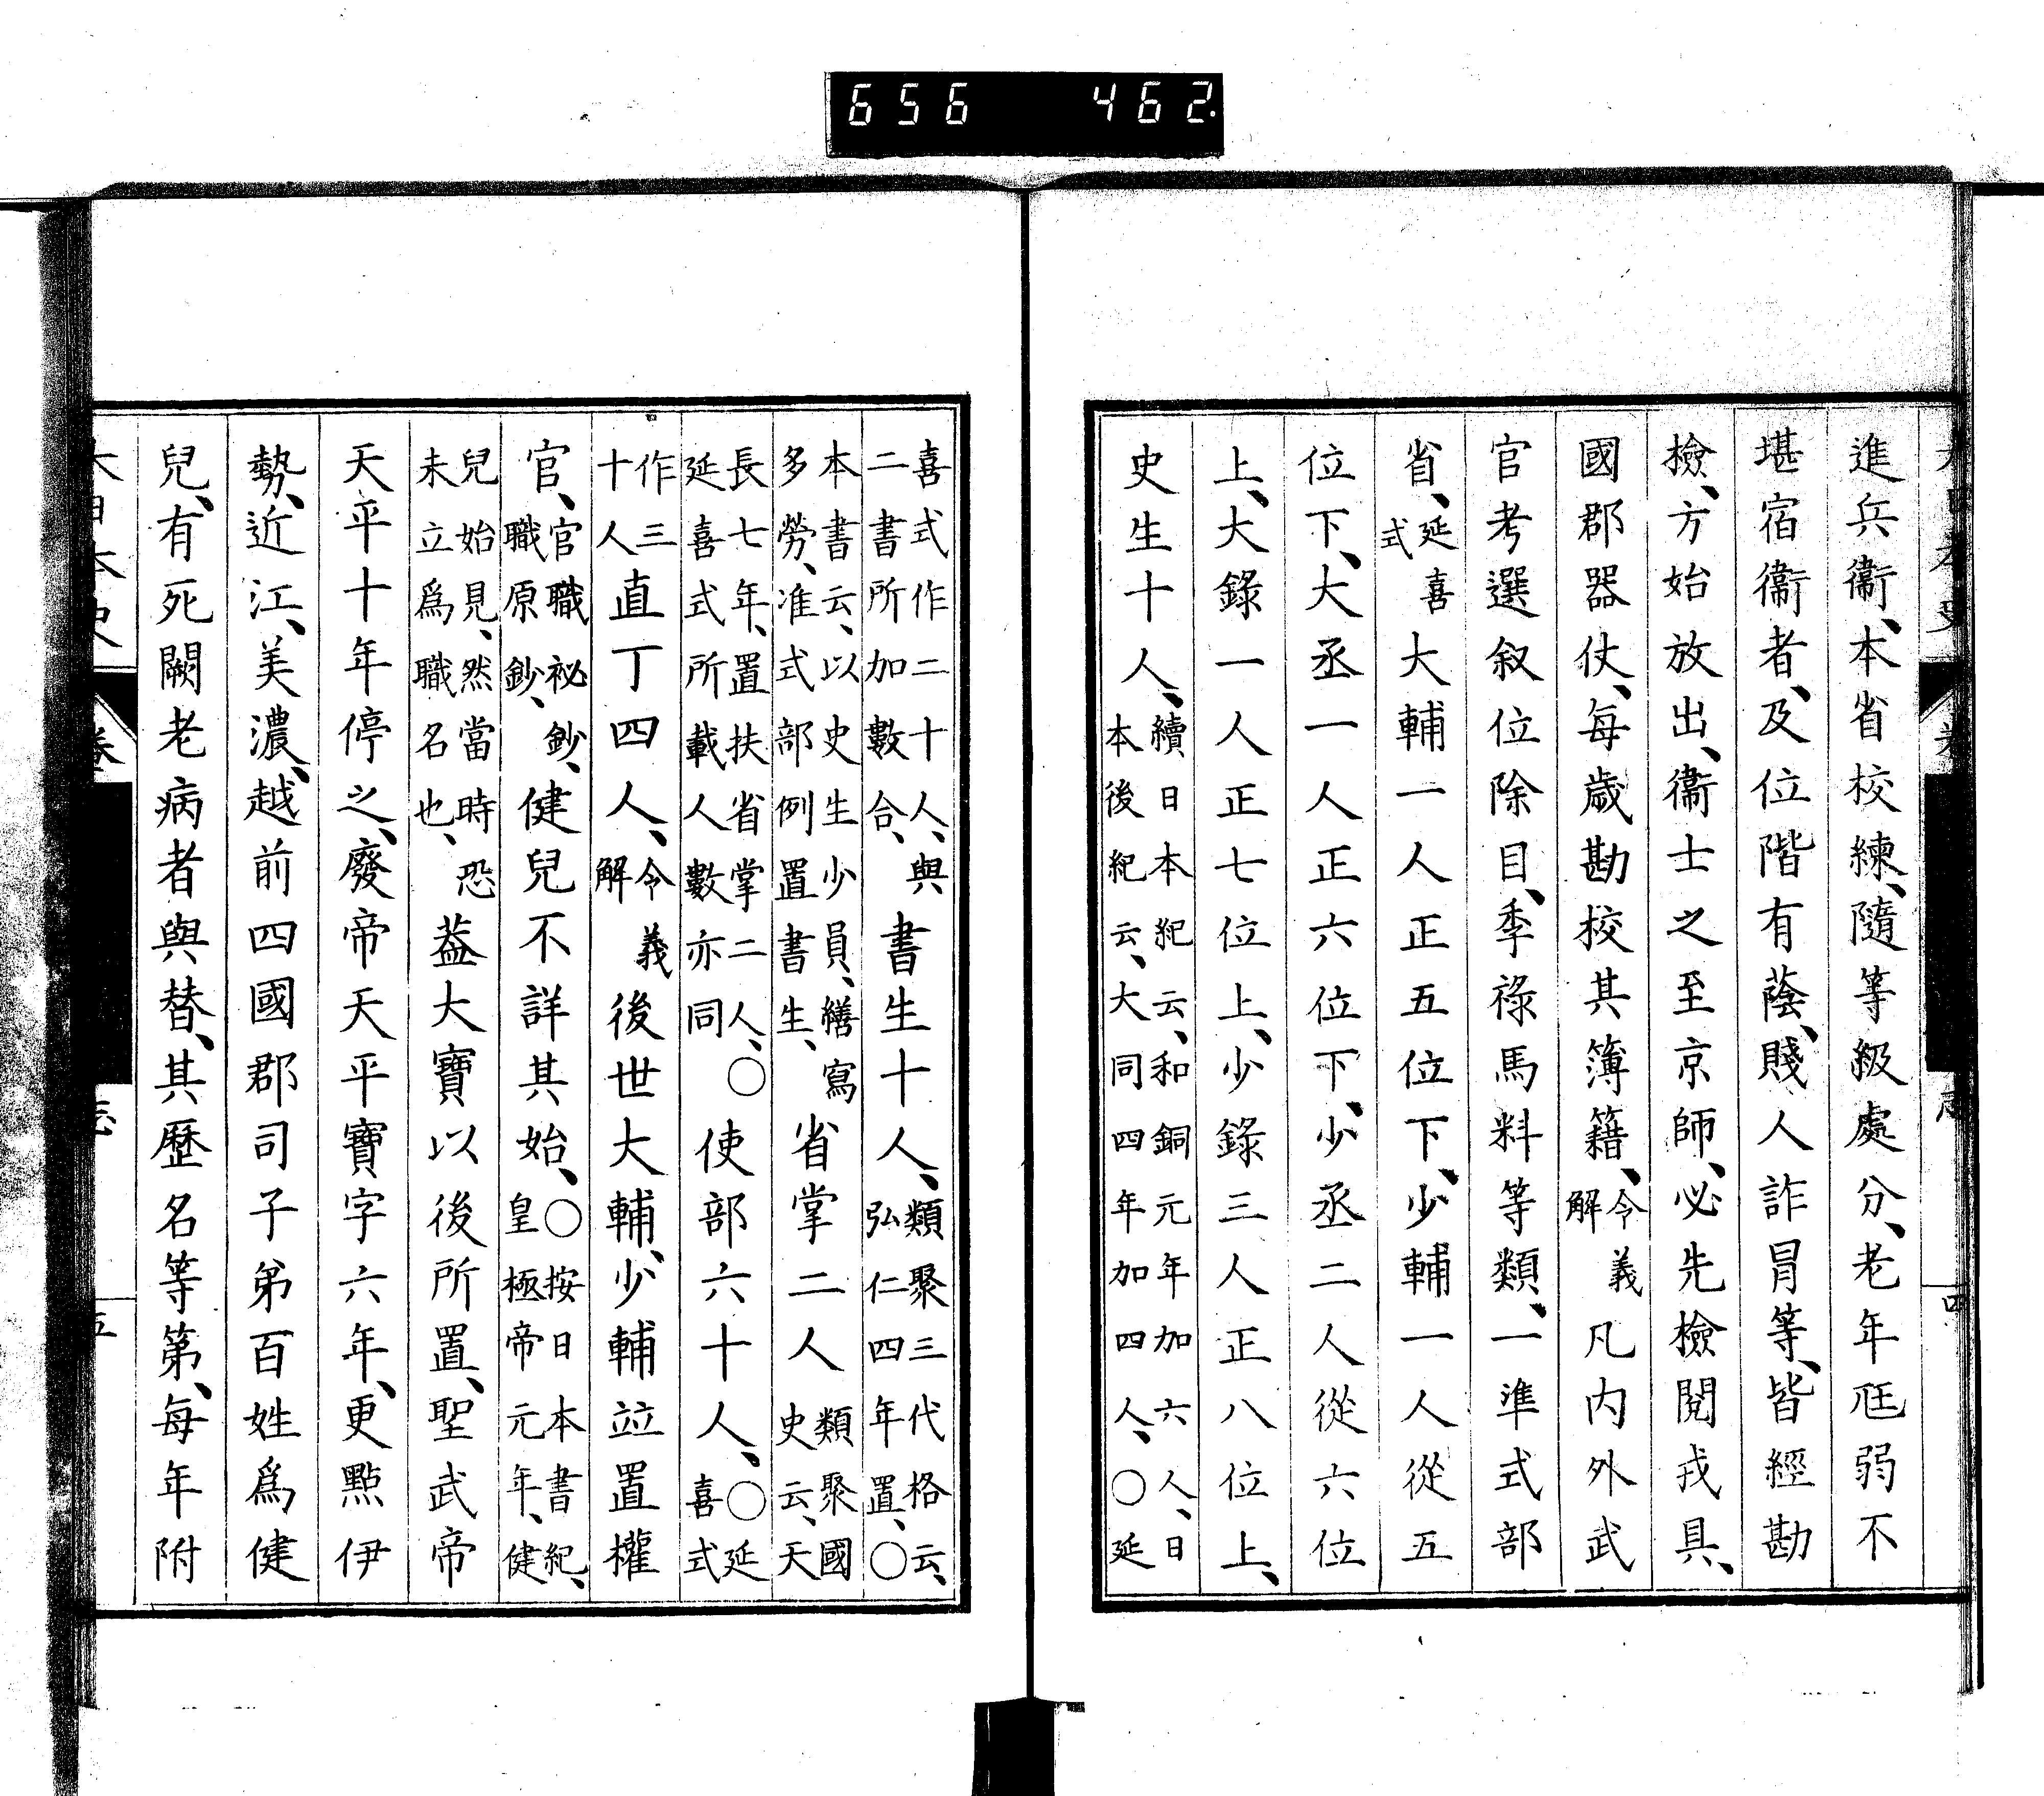 656 462
進兵衞、本省校練、隨等級處分、老年尫弱不
堪宿衞者、及位階有蔭、賤人詐冒等、皆經勘
檢、方始放出、衞士之至京師、必先檢閱戎具、
國郡器仗、每歲勘校其簿籍、令義解凡內外武
官考選叙位除目、季祿馬料等類、一準式部
省、延喜式大輔一人正五位下、少輔一人從五
位下、大丞一人正六位下、少丞二人從六位
上、大錄一人正七位上、少錄三人正八位上、
史生十人、續日本紀云、和銅元年加六人、日本後紀云、大同四年加四人、〇延
喜式作二十人、與二書所加數合、書生十人、類聚三代格云、弘仁四年置、〇
本書云、以史生少員、繕寫多勞、准式部例置書生、省掌二人類聚國史云、天
長七年、置扶省掌二人、〇延喜式所載人數亦同使部六十人、〇延喜式
作三十人直丁四人、令義解後世大輔、少輔竝置權
官、官職祕鈔、職原鈔、健兒不詳其始、〇按日本書紀、皇極帝元年、健
兒始見、然當時恐未立爲職名也、葢大寶以後所置、聖武帝
天平十年停之、廢帝天平寶字六年、更點伊
勢、近江、美濃、越前四國郡司子弟百姓爲健
兒、有死闕老病者與替、其歷名等第、每年附
大日本史 卷 志 五